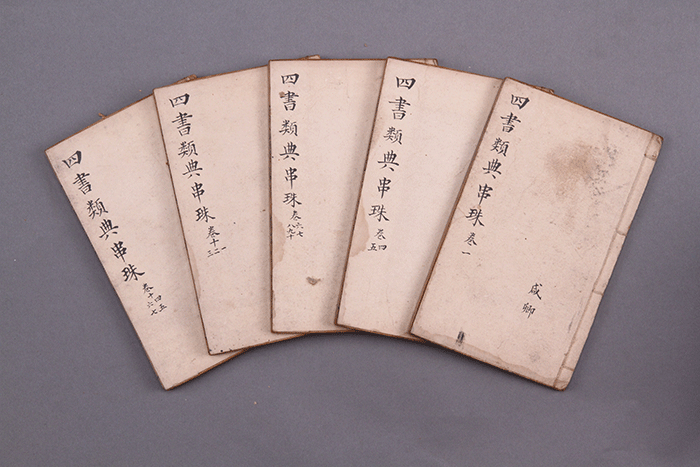 四書類典串珠 卷一
咸卿
四書類典串珠 卷四五
四書類典串珠 卷六七八九十
四書類典串珠 卷十一二三
四書類典串珠 卷十四五六七